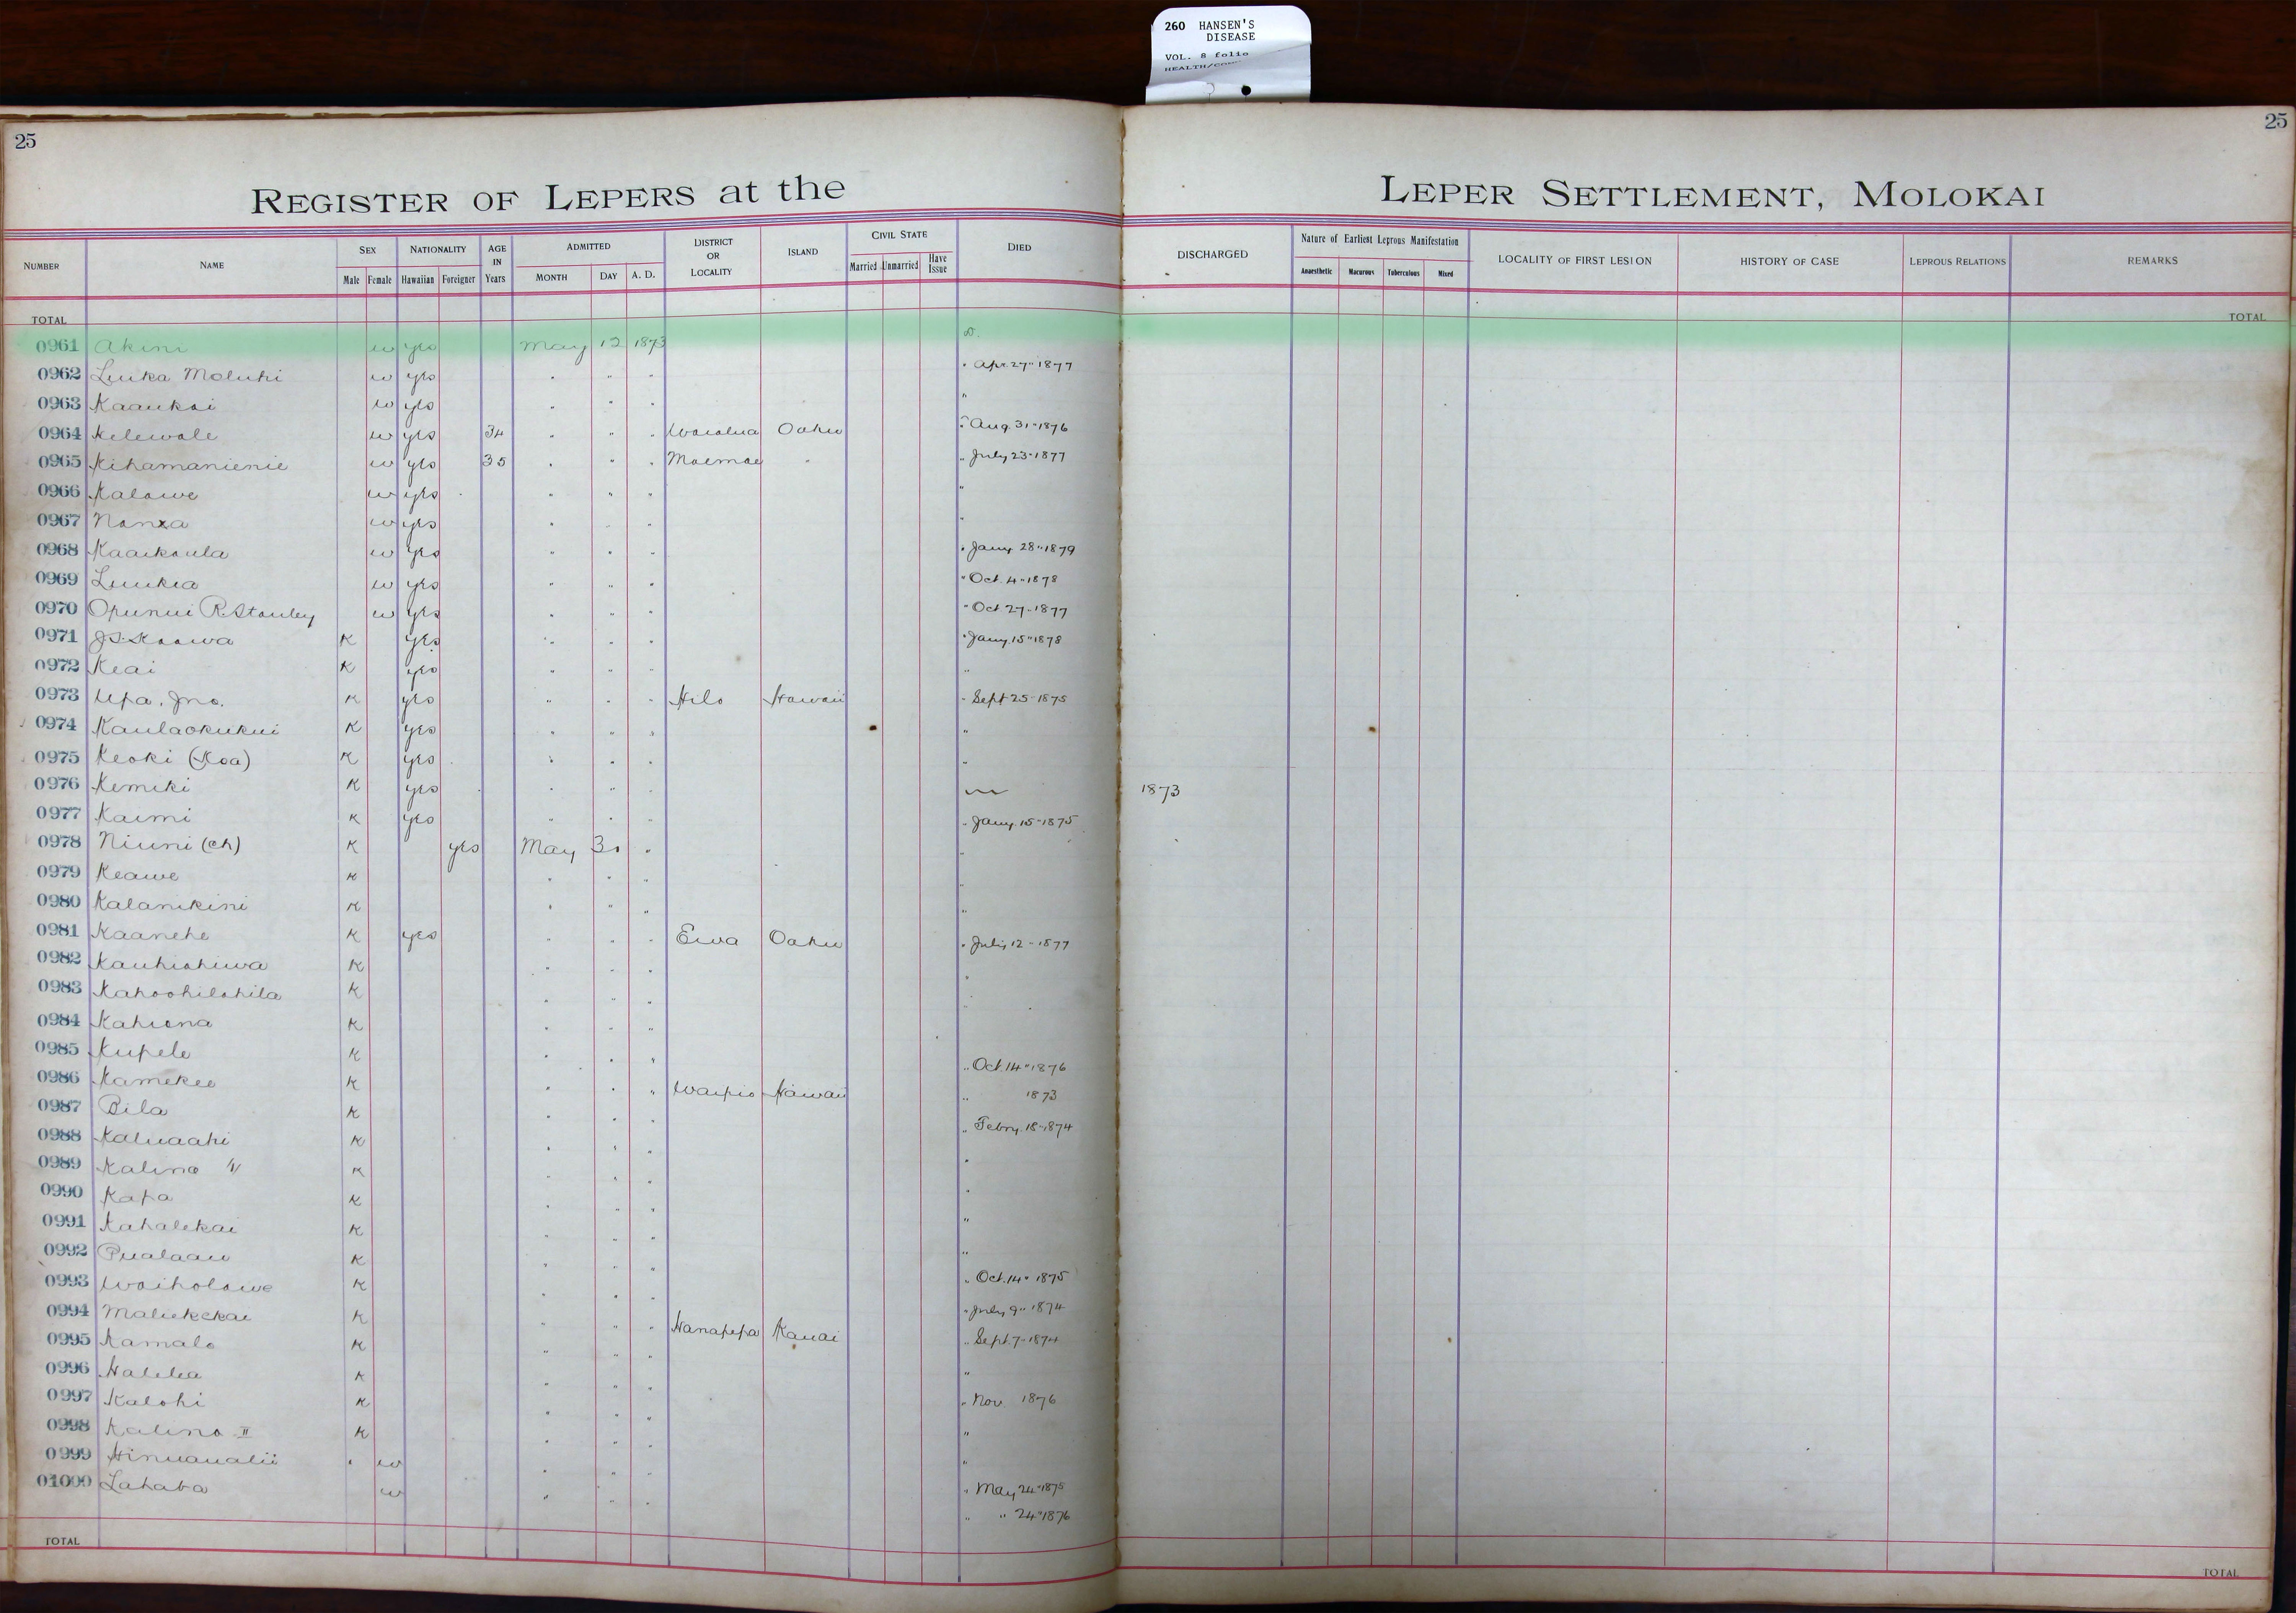 260 HANSEN'S
DISEASE
VOL. 8 folio
25
25
REGISTER OF LEPERS at the LEPER SETTLEMENT, MOLOKAI
NUMBER NAME SEX Male Female NATIONALITY Hawaiian Foreigner AGE IN Years ADMITTED MONTH DAY A. D. DISTRICT OR LOCALITY ISLAND CIVIL STATE Married Unmarried Have Issue DIED DISCHARGED Nature of Earliest Leprous Manifestation Anaesthetic Macurous Tuberculous Mixed LOCALITY OF FIRST LESION HISTORY OF CASE LEPROUS RELATIONS REMARKS
TOTAL TOTAL
0961 Akini w yes May 12 1873 D.
0962 Luika Moluhi w yes " " " " Apr. 27" 1877
0963 Kaaukai w yes " " " "
0964 Kelewale w yes 34 " " " Waialua Oahu " Aug. 31" 1876
0965 Kihamanienie w yes 35 " " " Moemoe " " July 23" 1877
0966 Kalawe w yes " " " "
0967 w yes " " " "
0968 Kaaikaula w yes " " " " Jany. 28" 1879
0969 Luukia w yes " " " " Oct. 4" 1878
0970 Opunui R. Stanley w yes " " " " Oct 27" 1877
0971 J.S. Kaawa K yes " " " " Jany. 15" 1878
0972 Keai K yes " " " "
0973 Upa. Jno. K yes " " " Hilo Hawaii " Sept 25" 1875
0974 Kaulaokukui K yes " " " "
0975 Keoki (Koa) K yes " " " "
0976 Kemiki K yes " " " 1873
0977 Kaimi K yes " " " " Jany. 15" 1875
0978 Niuni (Ch) K yes May 30 " "
0979 Keawe K " " " "
0980 Kalanikini K " " " "
0981 Kaanehe K yes " " " Ewa Oahu " July 12" 1877
0982 Kauhiahiwa K " " " "
0983 Kahoohilahila K " " " "
0984 Kahiona K " " "
0985 Kupele K " " " " Oct. 14" 1876
0986 Kamekeo K " " " Waipio Hawaii " 1873
0987 Pila K " " " " Febry. 18" 1874
0988 Kaluaahi K " " " "
0989 Kalino K " " " "
0990 Kapa K " " " "
0991 Kahalekai K " " " "
0992 Pualaau K " " " " Oct. 14" 1875
0993 Waiholowe K " " " " July 9" 1874
0994 Maliekekai K " " " Hanapepa Kauai " Sept. 7" 1874
0995 Kamalo K " " " "
0996 Halelea K " " " " Nov. 1876
0997 Kalohi K " " " "
0998 Kalino II K " " " "
0999 Hinuaualii w " " " " May 24" 1875
01000 Lahaba w " " " " " 24" 1876
TOTAL TOTAL